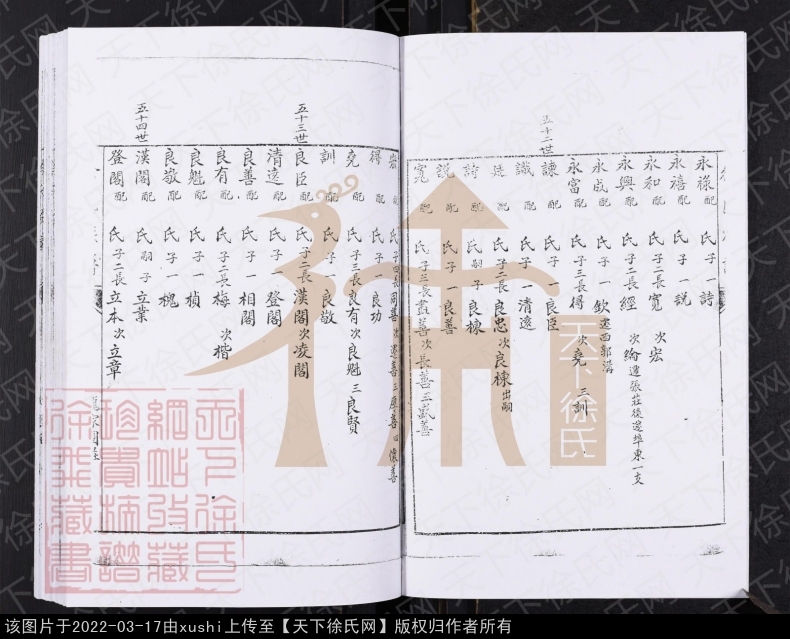 永祿 配 氏 子一 詩
永禧 配 氏 子一 説
永和 配 氏 子二長 寬 次 宏
永興 配 氏 子二長 經 次 綸 遷張莊後遷埠東一支
永成 配 氏 子一 欽 遷西郭溝
永富 配 氏 子三長 得 次 堯 三 訓
五十二世
諫 配 氏 子一 良臣
識 配 氏 子一 清遠
配 氏 子三長 良忠 次 良棟 出嗣
詩 配 氏 嗣子 良棟
説 配 氏 子一 良善
寬 配 氏 子三長 善 次 長善 三 盛善
宏 配 氏 子四長 周善 次 遷善 三 慶善 四 懷善
得 配 氏 子一 良功
堯 配 氏 子三長 良有 次 良魁 三 良賢
訓 配 氏 子一 良敬
五十三世
良臣 配 氏 子二長 漢閣 次 凌閣
清遠 配 氏 子一 登閣
良善 配 氏 子一 相閣
良有 配 氏 子二長 梅 次 楷
良魁 配 氏 子一 楨
良敬 配 氏 子一 槐
五十四世
漢閣 配 氏 嗣子 立業
登閣 配 氏 子二長 立本 次 立章
天下徐氏
天下徐氏
網站收藏
珍貴族譜
徐葉藏書
天下徐氏网
该图片于2022-03-17由xushi上传至【天下徐氏网】版权归作者所有